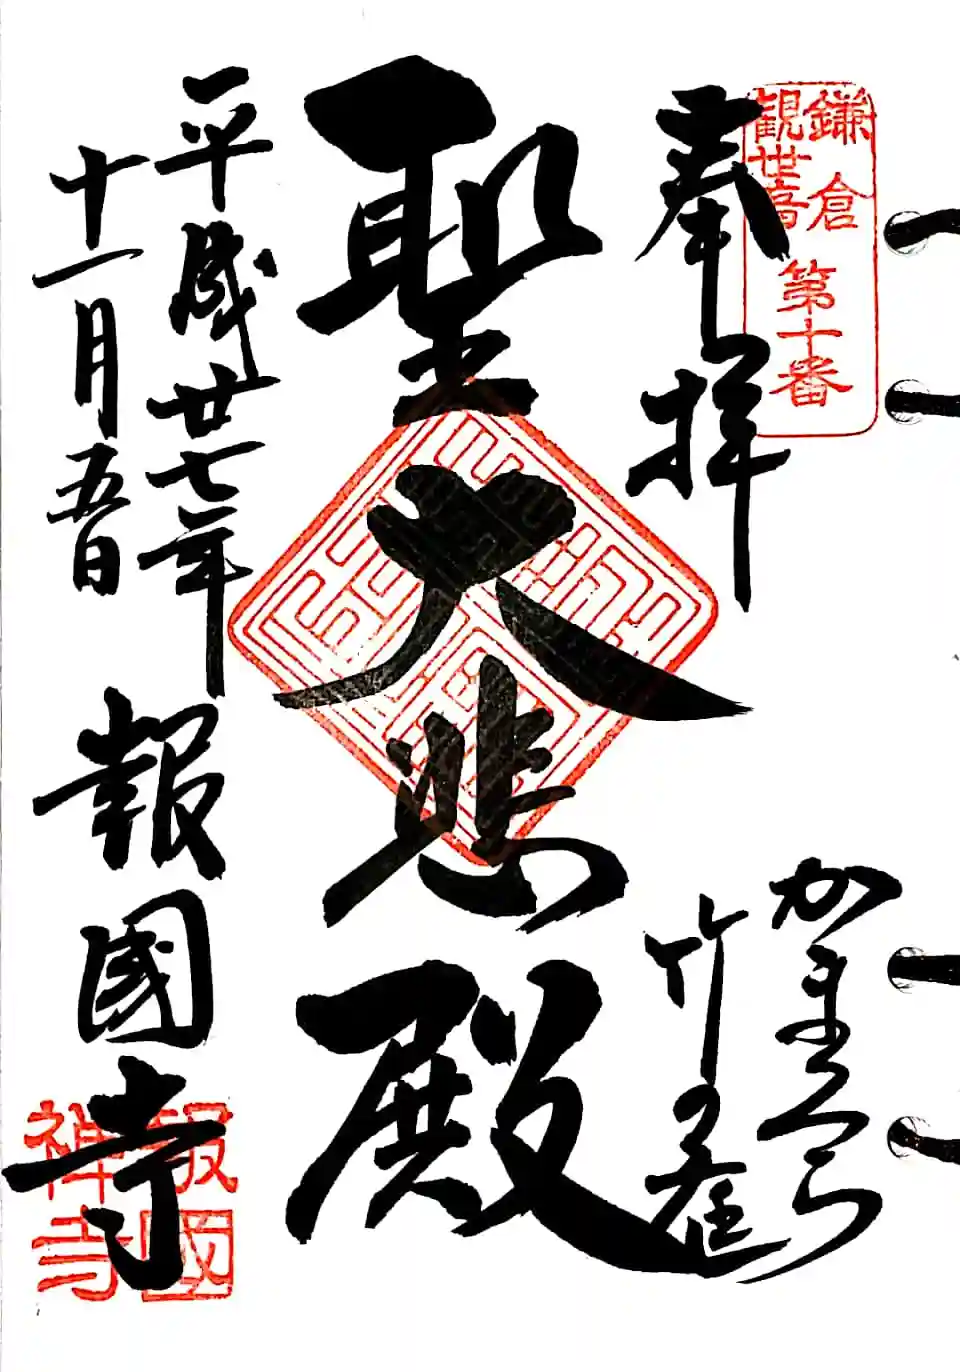 鎌倉
観世音
第十番
奉拝
かまくら
竹の庭
聖大悲殿
平成廿七年
十一月五日
報國寺
報國
禅寺